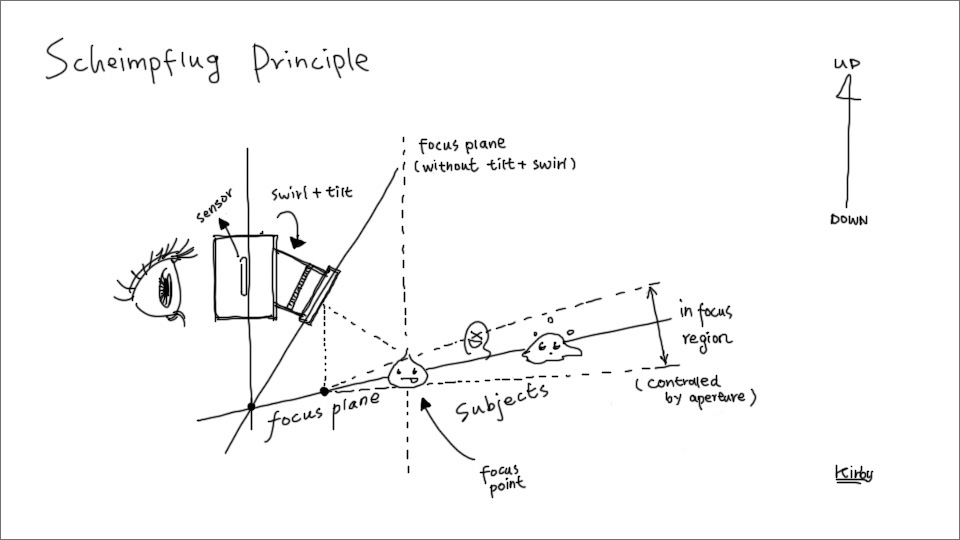 Scheimpflug Principle
UP
DOWN
focus plane
(without tilt + swirl)
swirl + tilt
sensor
in focus
region
(controled
by aperture)
focus plane
subjects
focus
point
Kirby